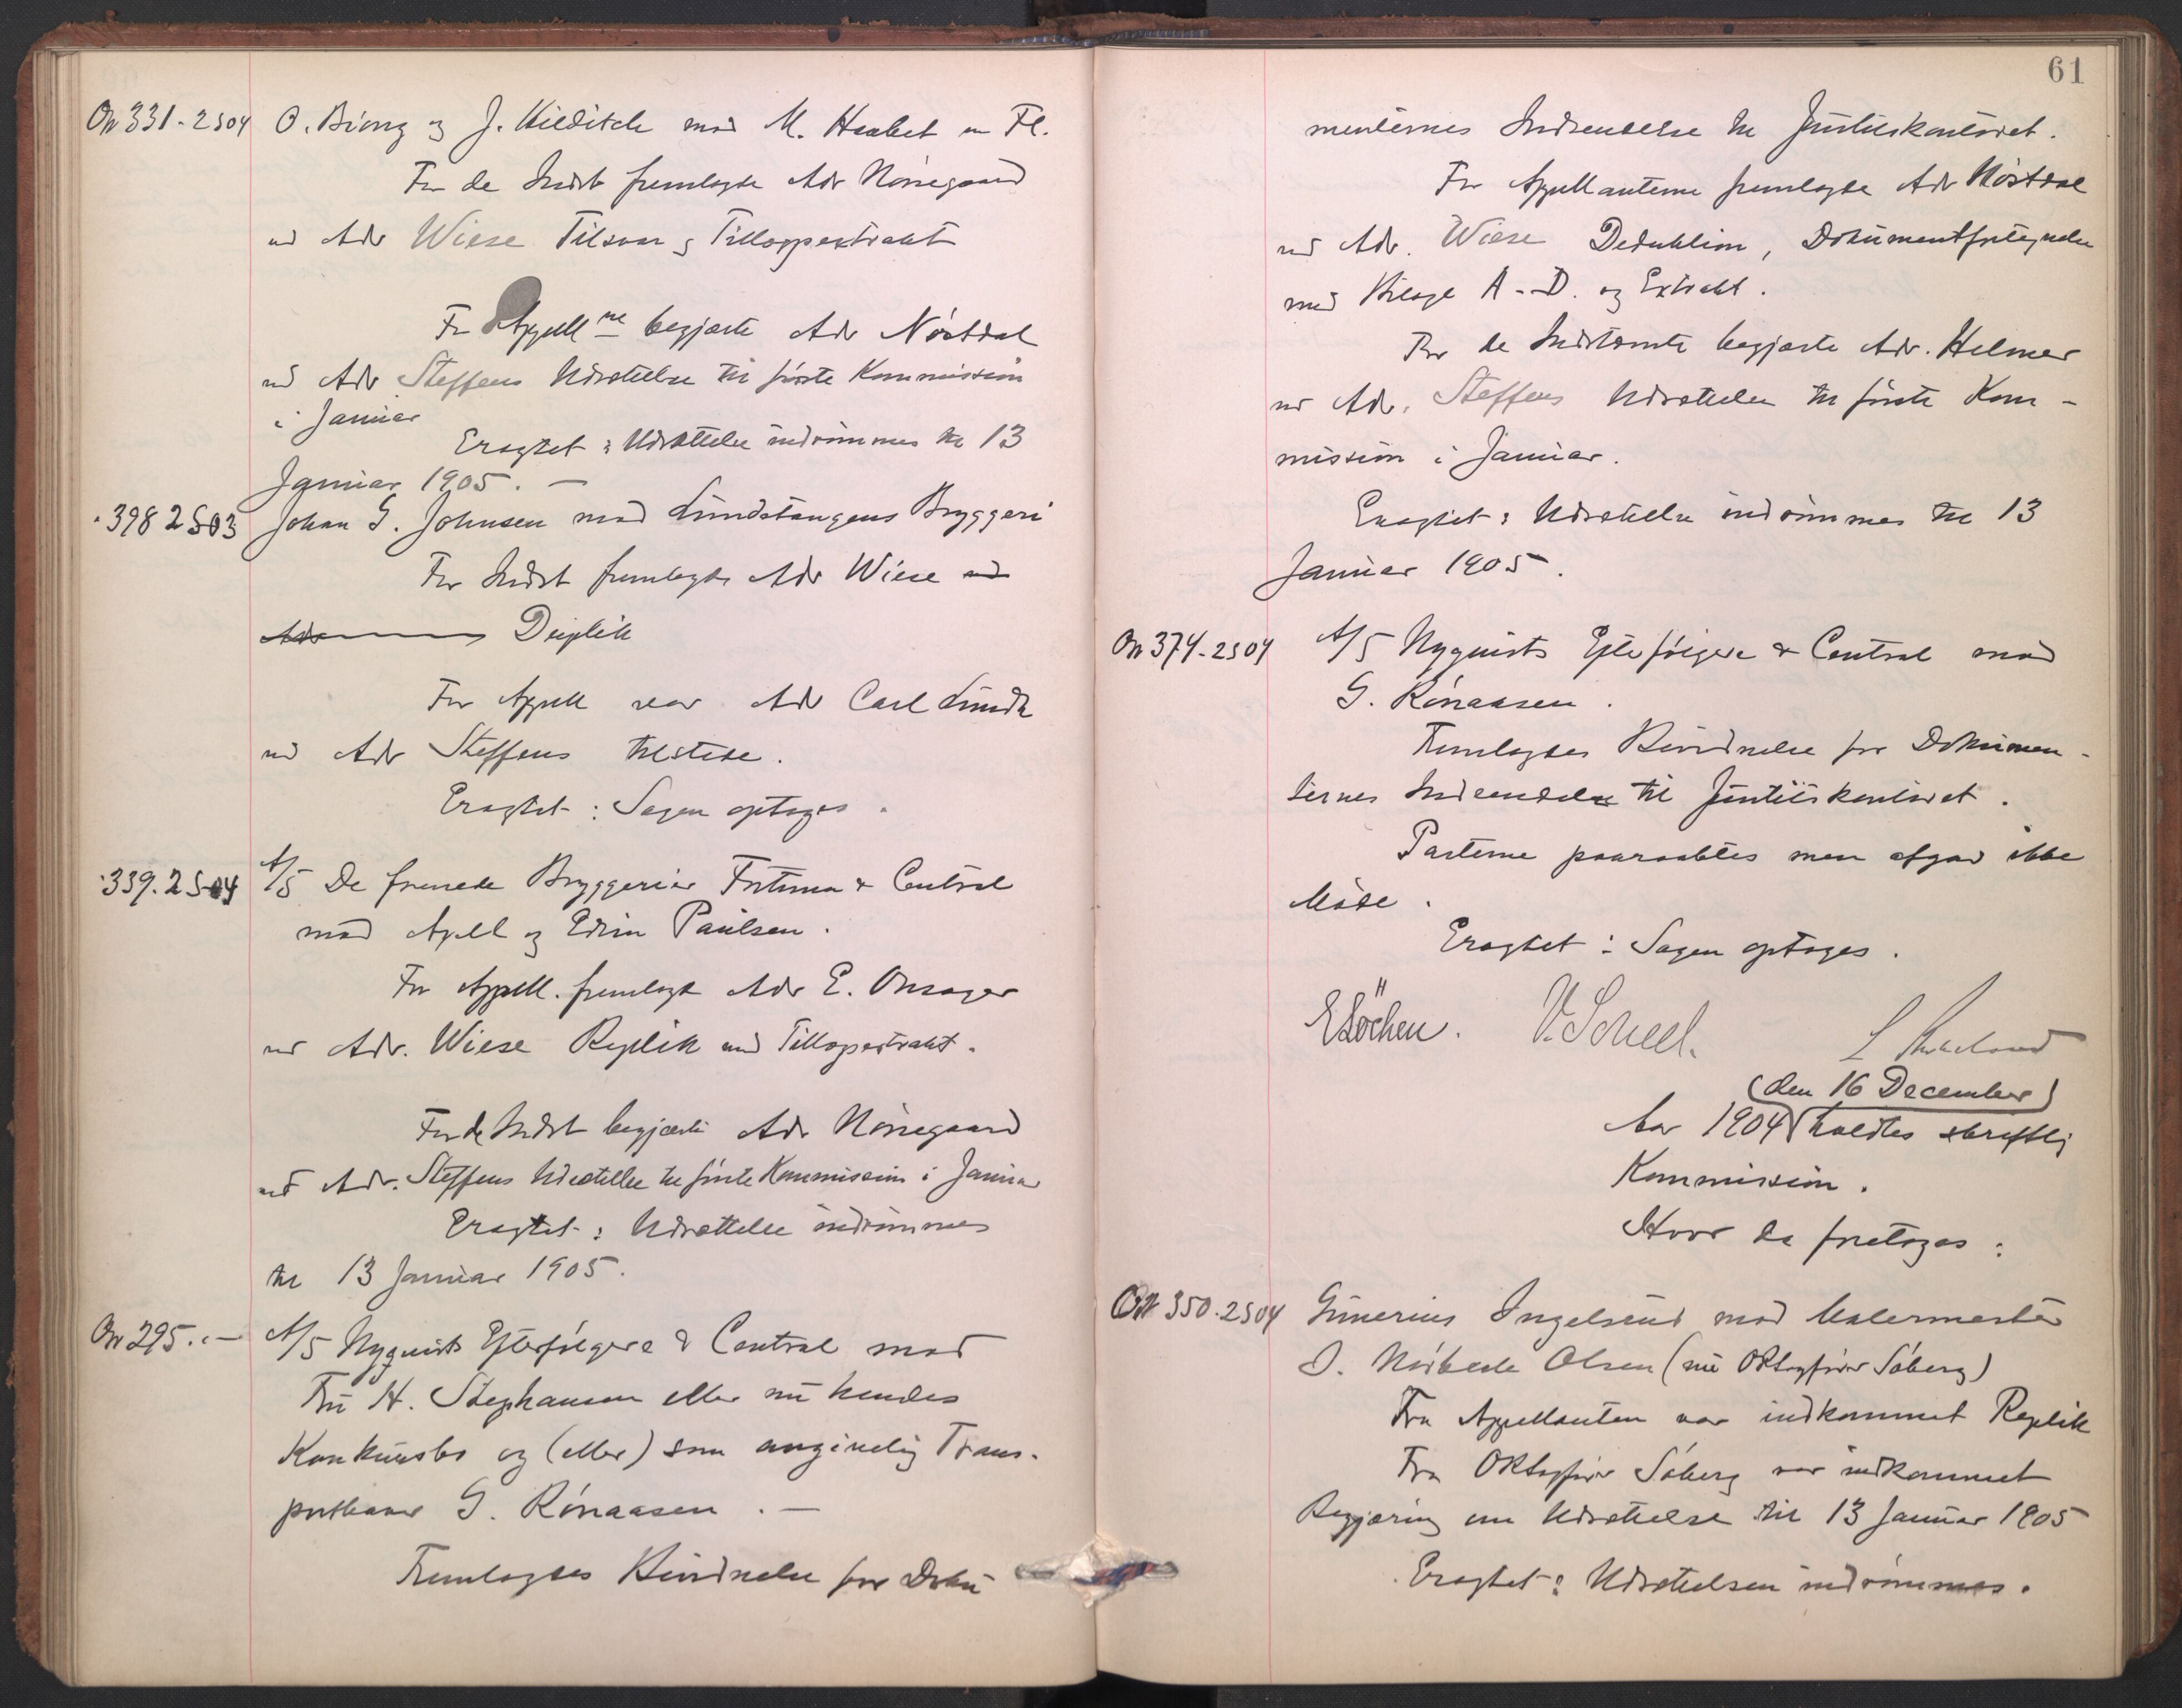 On 331-2S04 O. Biong og J. Hilditch mod M. Haabet m Fl.
For de Indst fremlagde Adv Nörregaard
ved Adv Wiese Tilsvar og Tillægsextrakt
For Appell ne begjærte Adv Nöstdal
ved Adv Steffens Udsættelse til förste Kommission
i Januar
Eragtet: Udsættelse indrömmes til 13
Januar 1905. —
" 398 2S03 Johan G. Johnsen mod Lundetangens Bryggeri
For Indst fremlagde Adv Wiese ved
Adv Duplik
For Appell var Adv Carl Lundh
ved Adv Steffens tilstede.
Eragtet: Sagen optages.
" 339. 2S04 A/S De forenede Bryggerier Fortuna & Central
mod Apell og Edvin Paulsen.
For Appell. fremlagde Adv E. Onsager
ved Adv. Wiese Replik med Tillægsextrakt.
For de Indst begjærte Adv Nörregaard
ved Adv. Steffens Udsættelse til förste Kommission i Januar
Eragtet: Udsættelse indrömmes
til 13 Januar 1905.
On 295. " — A/S Nyquists Efterfölgere & Central mod
Fru H. Stephansen eller nu hendes
Konkursbo og (eller) som angivelig Trans-
porthaver G. Rönaasen. —
Fremlagdes Bevidnelse for Doku
61
menternes Indsendelse til Justitskontoret.
For Appellanterne fremlagde Adv Nöstdal
ved Adv. Wiese Deduktion, Dokumentfortegnelse
med Bilage A-D. og Extrakt.
For de Indstævnte begjærte Adv. Helmer
ved Adv. Steffens Udsættelse til förste Kom-
mission i Januar.
Eragtet: Udsættelse indrömmes til 13
Januar 1905.
On 374-2S04 A/S Nyquists Efterfölgere & Central mod
G. Rönaasen.
Fremlagdes Bevidnelse for Dokumen-
ternes Indsendelse til Justitskontoret.
Parterne paaraabtes men afgav ikke
Möde.
Eragtet: Sagen optages.
E Löchen. V. Scheel.
(den 16 December)
Aar 1904 holdtes skriftlig
Kommission.
Hvor da foretoges:
On 350-2S04 Gunerius Ingelsrud mod Malermester
O. Nörbech Olsen (nu ORsagförer Söberg)
Fra Appellanten var indkommet Replik
Fra ORsagförer Söberg var indkommet
Begjæring om Udsættelse til 13 Januar 1905
Eragtet: Udsættelsen indrömmes.